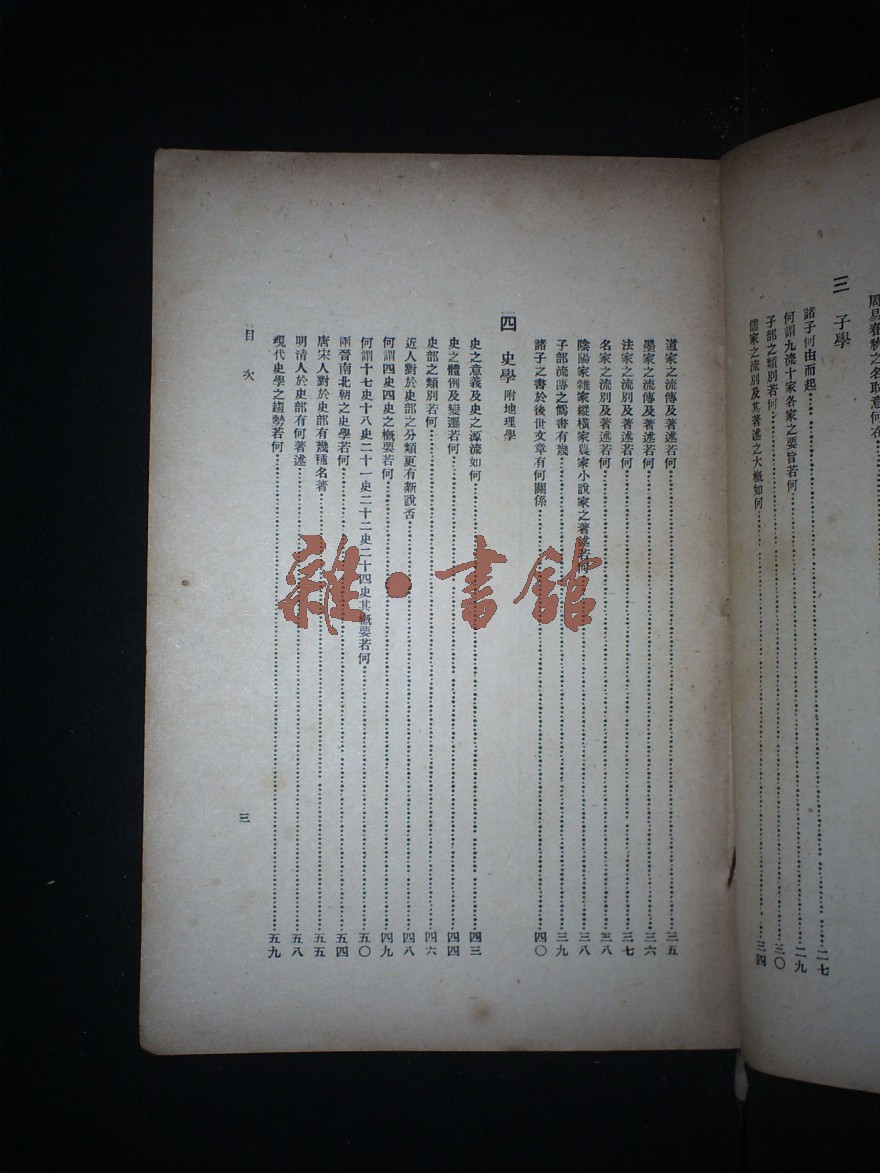 周易春秋之名取意何在
三 子學
諸子何由而起……二七
何謂九流十家各家之要旨若何……二九
子部之類別若何……三〇
儒家之流別及其著述之大概如何……三四
道家之流傳及著述若何……三五
墨家之流傳及著述若何……三六
法家之流別及著述若何……三七
名家之流別及著述若何……三八
陰陽家雜家縱橫家農家小說家之著述若何……三八
子部流傳之僞書有幾……三九
諸子之書於後世文章有何關係……四〇
四 史學 附地理學
史之意義及史之源流如何……四三
史之體例及變遷若何……四四
史部之類別若何……四六
近人對於史部之分類更有新說否……四八
何謂四史四史之概要若何……四九
何謂十七史十八史二十一史二十二史二十四史其概要若何……五〇
兩晉南北朝之史學若何……五四
唐宋人對於史部有幾種名著……五五
明清人於史部有何著述……五八
現代史學之趨勢若何……五九
目次
三
雜·書館